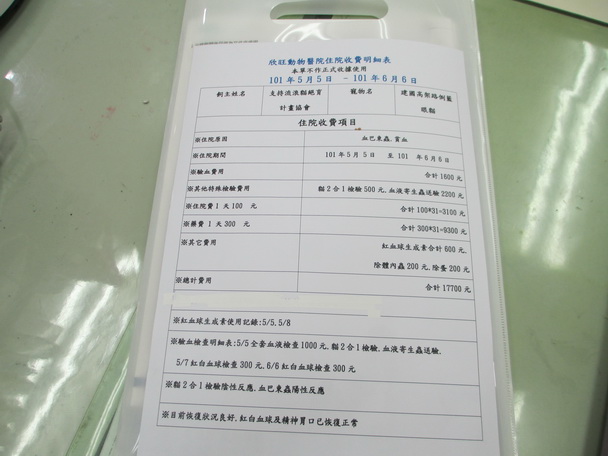 欣旺動物醫院住院收費明細表
本單不作正式收據使用
101年5月5日 -101年6月6日
飼主姓名 支持流浪貓絕育計畫協會 寵物名 建國高架路側籠 眼貓
住院收費項目
※住院原因 血巴東蟲.貧血
※住院期間 101年5月5日 至101 年6月6日
※驗血費用 合計1800元
※其他特殊檢驗費用 貓2合1檢驗500元.血液寄生蟲送驗2200元
※住院費1天100 元 合計100*31=3100元
※藥費1天300 元 合計300*31=9300元
※其它費用 紅血球生成素合計600元.
除體內蟲200元.除蚤200元
※總計費用 合計17700元
※紅血球生成素使用記錄:5/5.5/8
※驗血檢查明細表:5/5全套血液檢查1000元.貓2合1檢驗.血液寄生蟲送驗.
5/7紅白血球檢查300元.6/6紅白血球檢查300元
※貓2合1檢驗陰性反應.血巴東蟲陽性反應
※目前恢復狀況良好.紅白血球及精神胃口已恢復正常